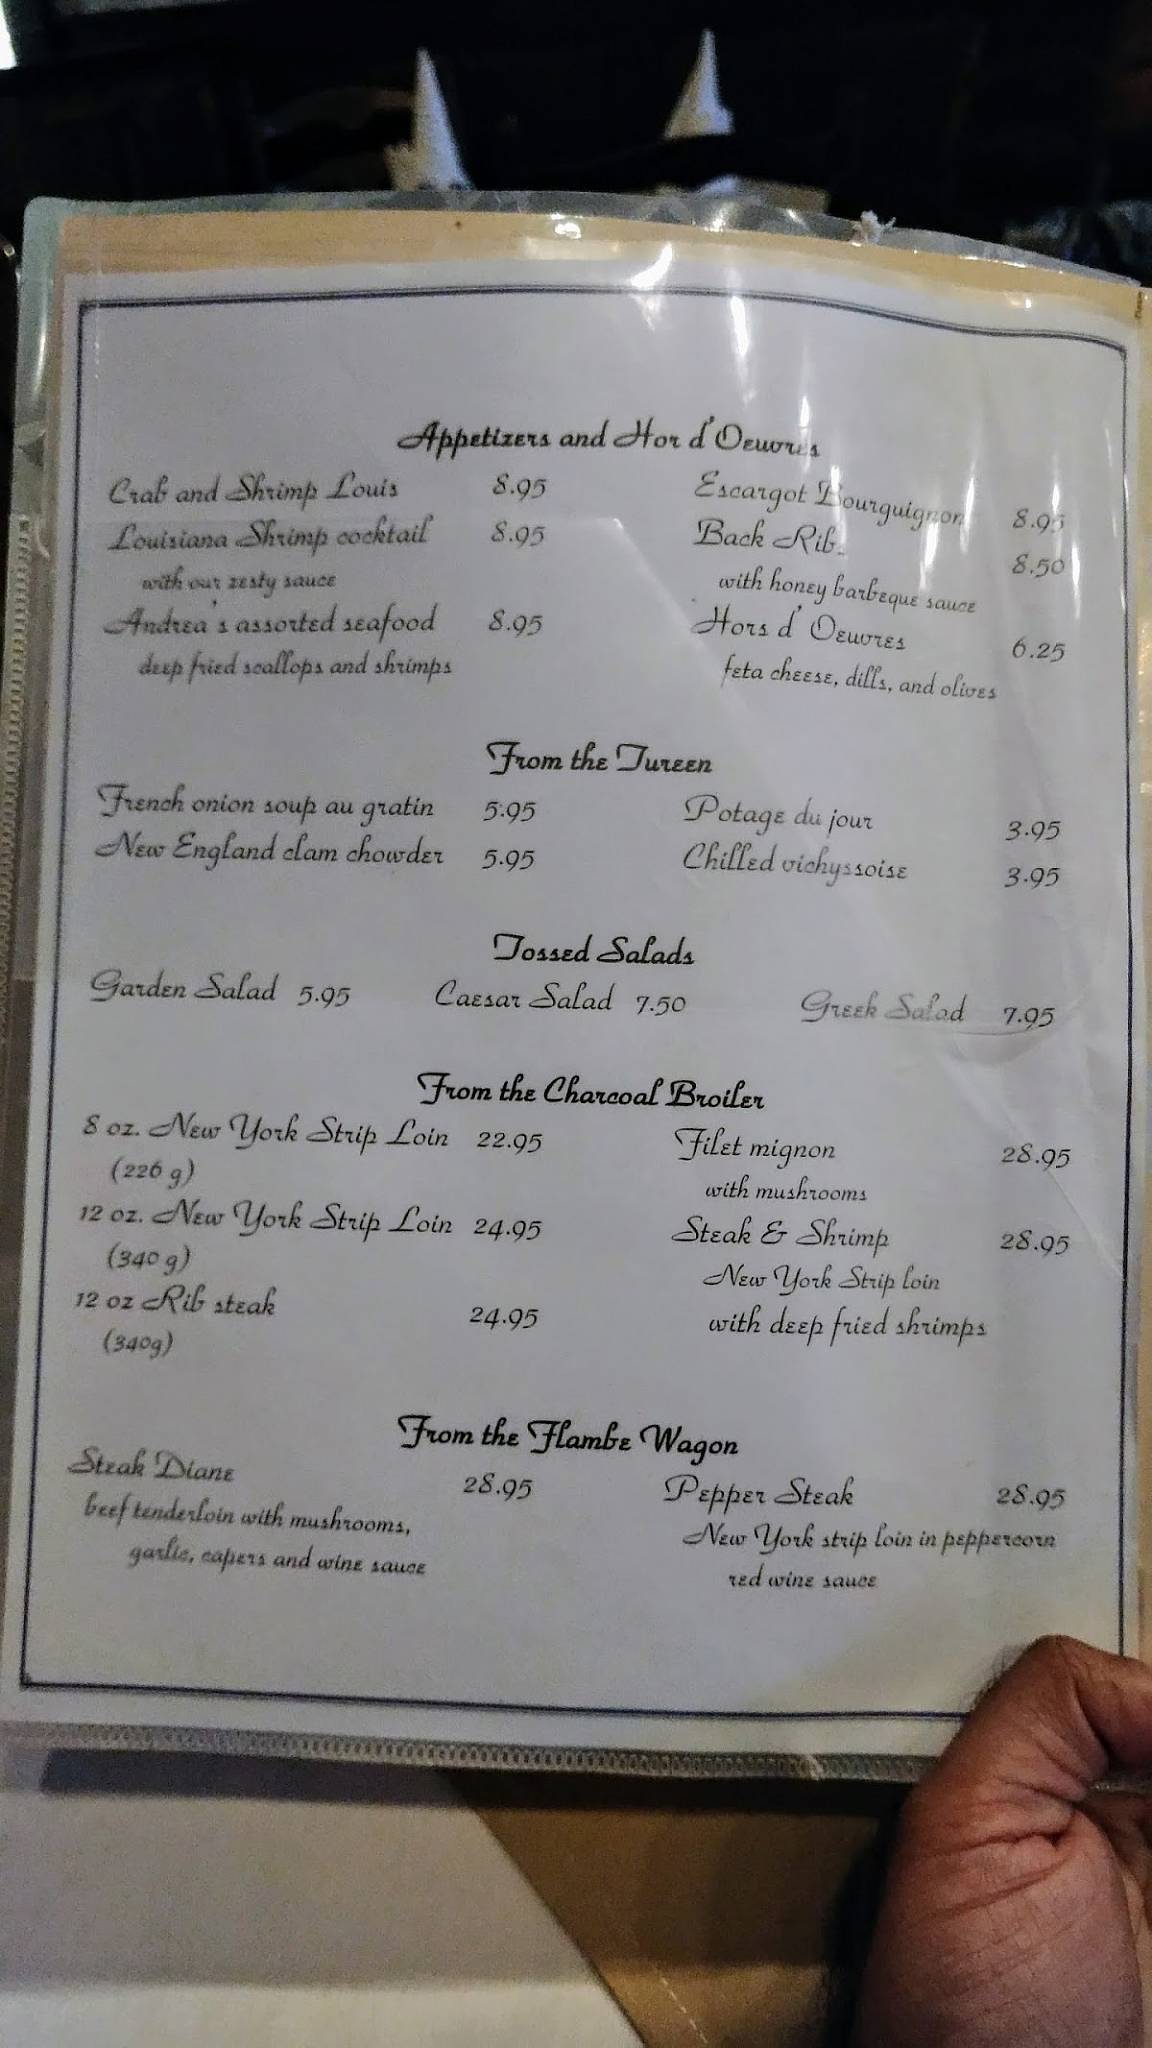 Appetizers and Hor d'Oeuvres
Crab and Shrimp Louis 8.95
Louisiana Shrimp cocktail 8.95
with our zesty sauce
Andrea's assorted seafood 8.95
deep fried scallops and shrimps
Escargot Bourguignon 8.95
Back Rib 8.50
with honey barbeque sauce
Hors d' Oeuvres 6.25
feta cheese, dills, and olives
From the Tureen
French onion soup au gratin 5.95
New England clam chowder 5.95
Potage du jour 3.95
Chilled vichyssoise 3.95
Tossed Salads
Garden Salad 5.95 Caesar Salad 7.50 Greek Salad 7.95
From the Charcoal Broiler
8 oz. New York Strip Loin 22.95
(226 g)
12 oz. New York Strip Loin 24.95
(340 g)
12 oz Rib steak 24.95
(340g)
Filet mignon 28.95
with mushrooms
Steak & Shrimp 28.95
New York Strip loin
with deep fried shrimps
From the Flambe Wagon
Steak Diane 28.95
beef tenderloin with mushrooms,
garlic, capers and wine sauce
Pepper Steak 28.95
New York strip loin in peppercorn
red wine sauce